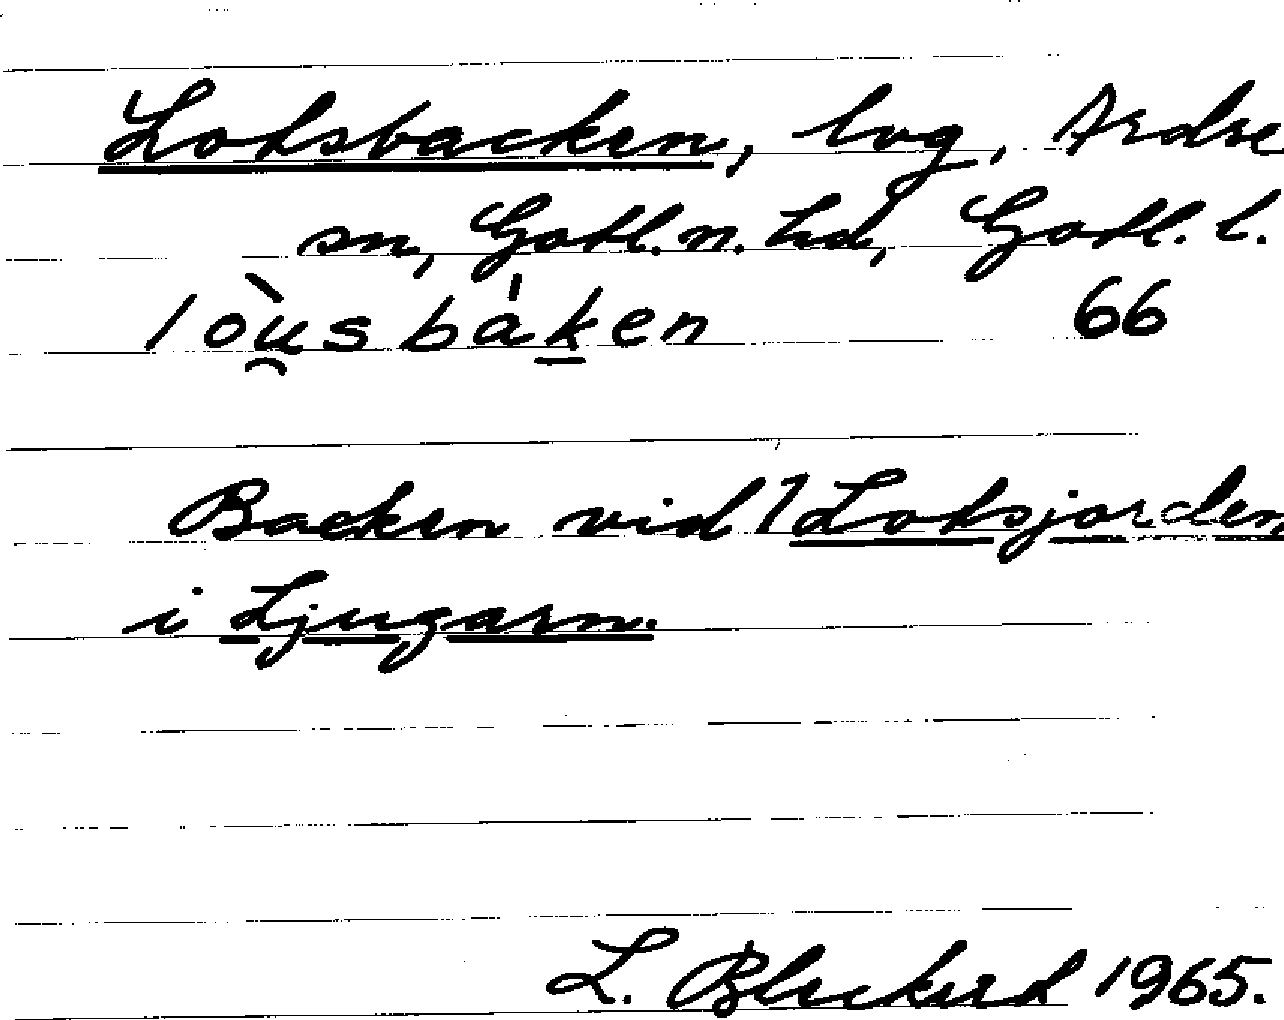 Lotsbacken, bvg, Ardre
sn, Gotl. n. hd, Gotl. l.
lòu̯sbák̠en 66
Backen vid 1 Lotsjorden
i Ljugarn.
L. Bleckerd 1965.